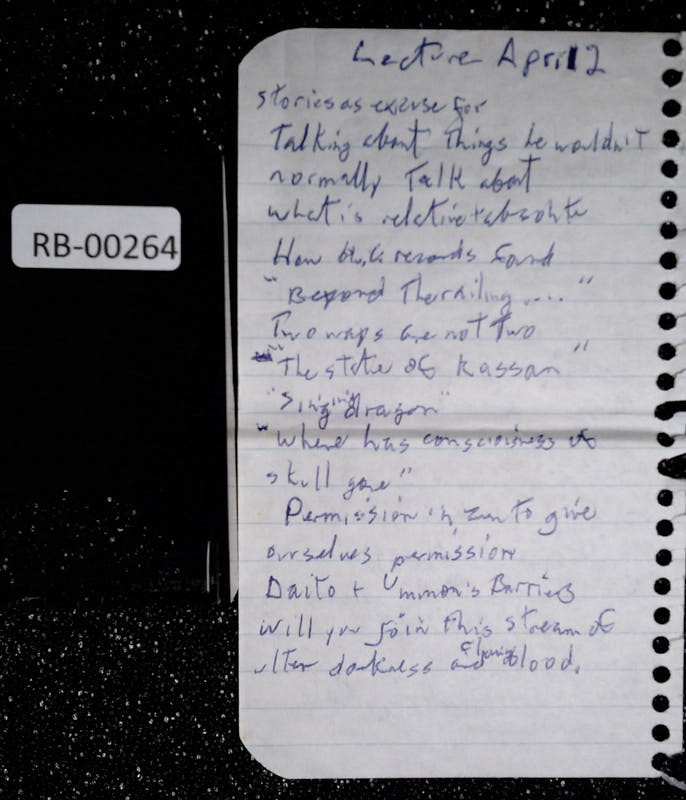 RB-00264
Lecture April 2
stories as excuse for
Talking about Things he wouldn't
normally Talk about
what is relative + absolute
How records found
"Beyond The railing ...."
Two ways are not two
"The state of Kassan"
"Singing dragon"
"Where has consciousness of
skull gone"
Permission in zen to give
ourselves permission
Daito + Ummon's Barriers
will you join this stream of
utter darkness and flowing blood.